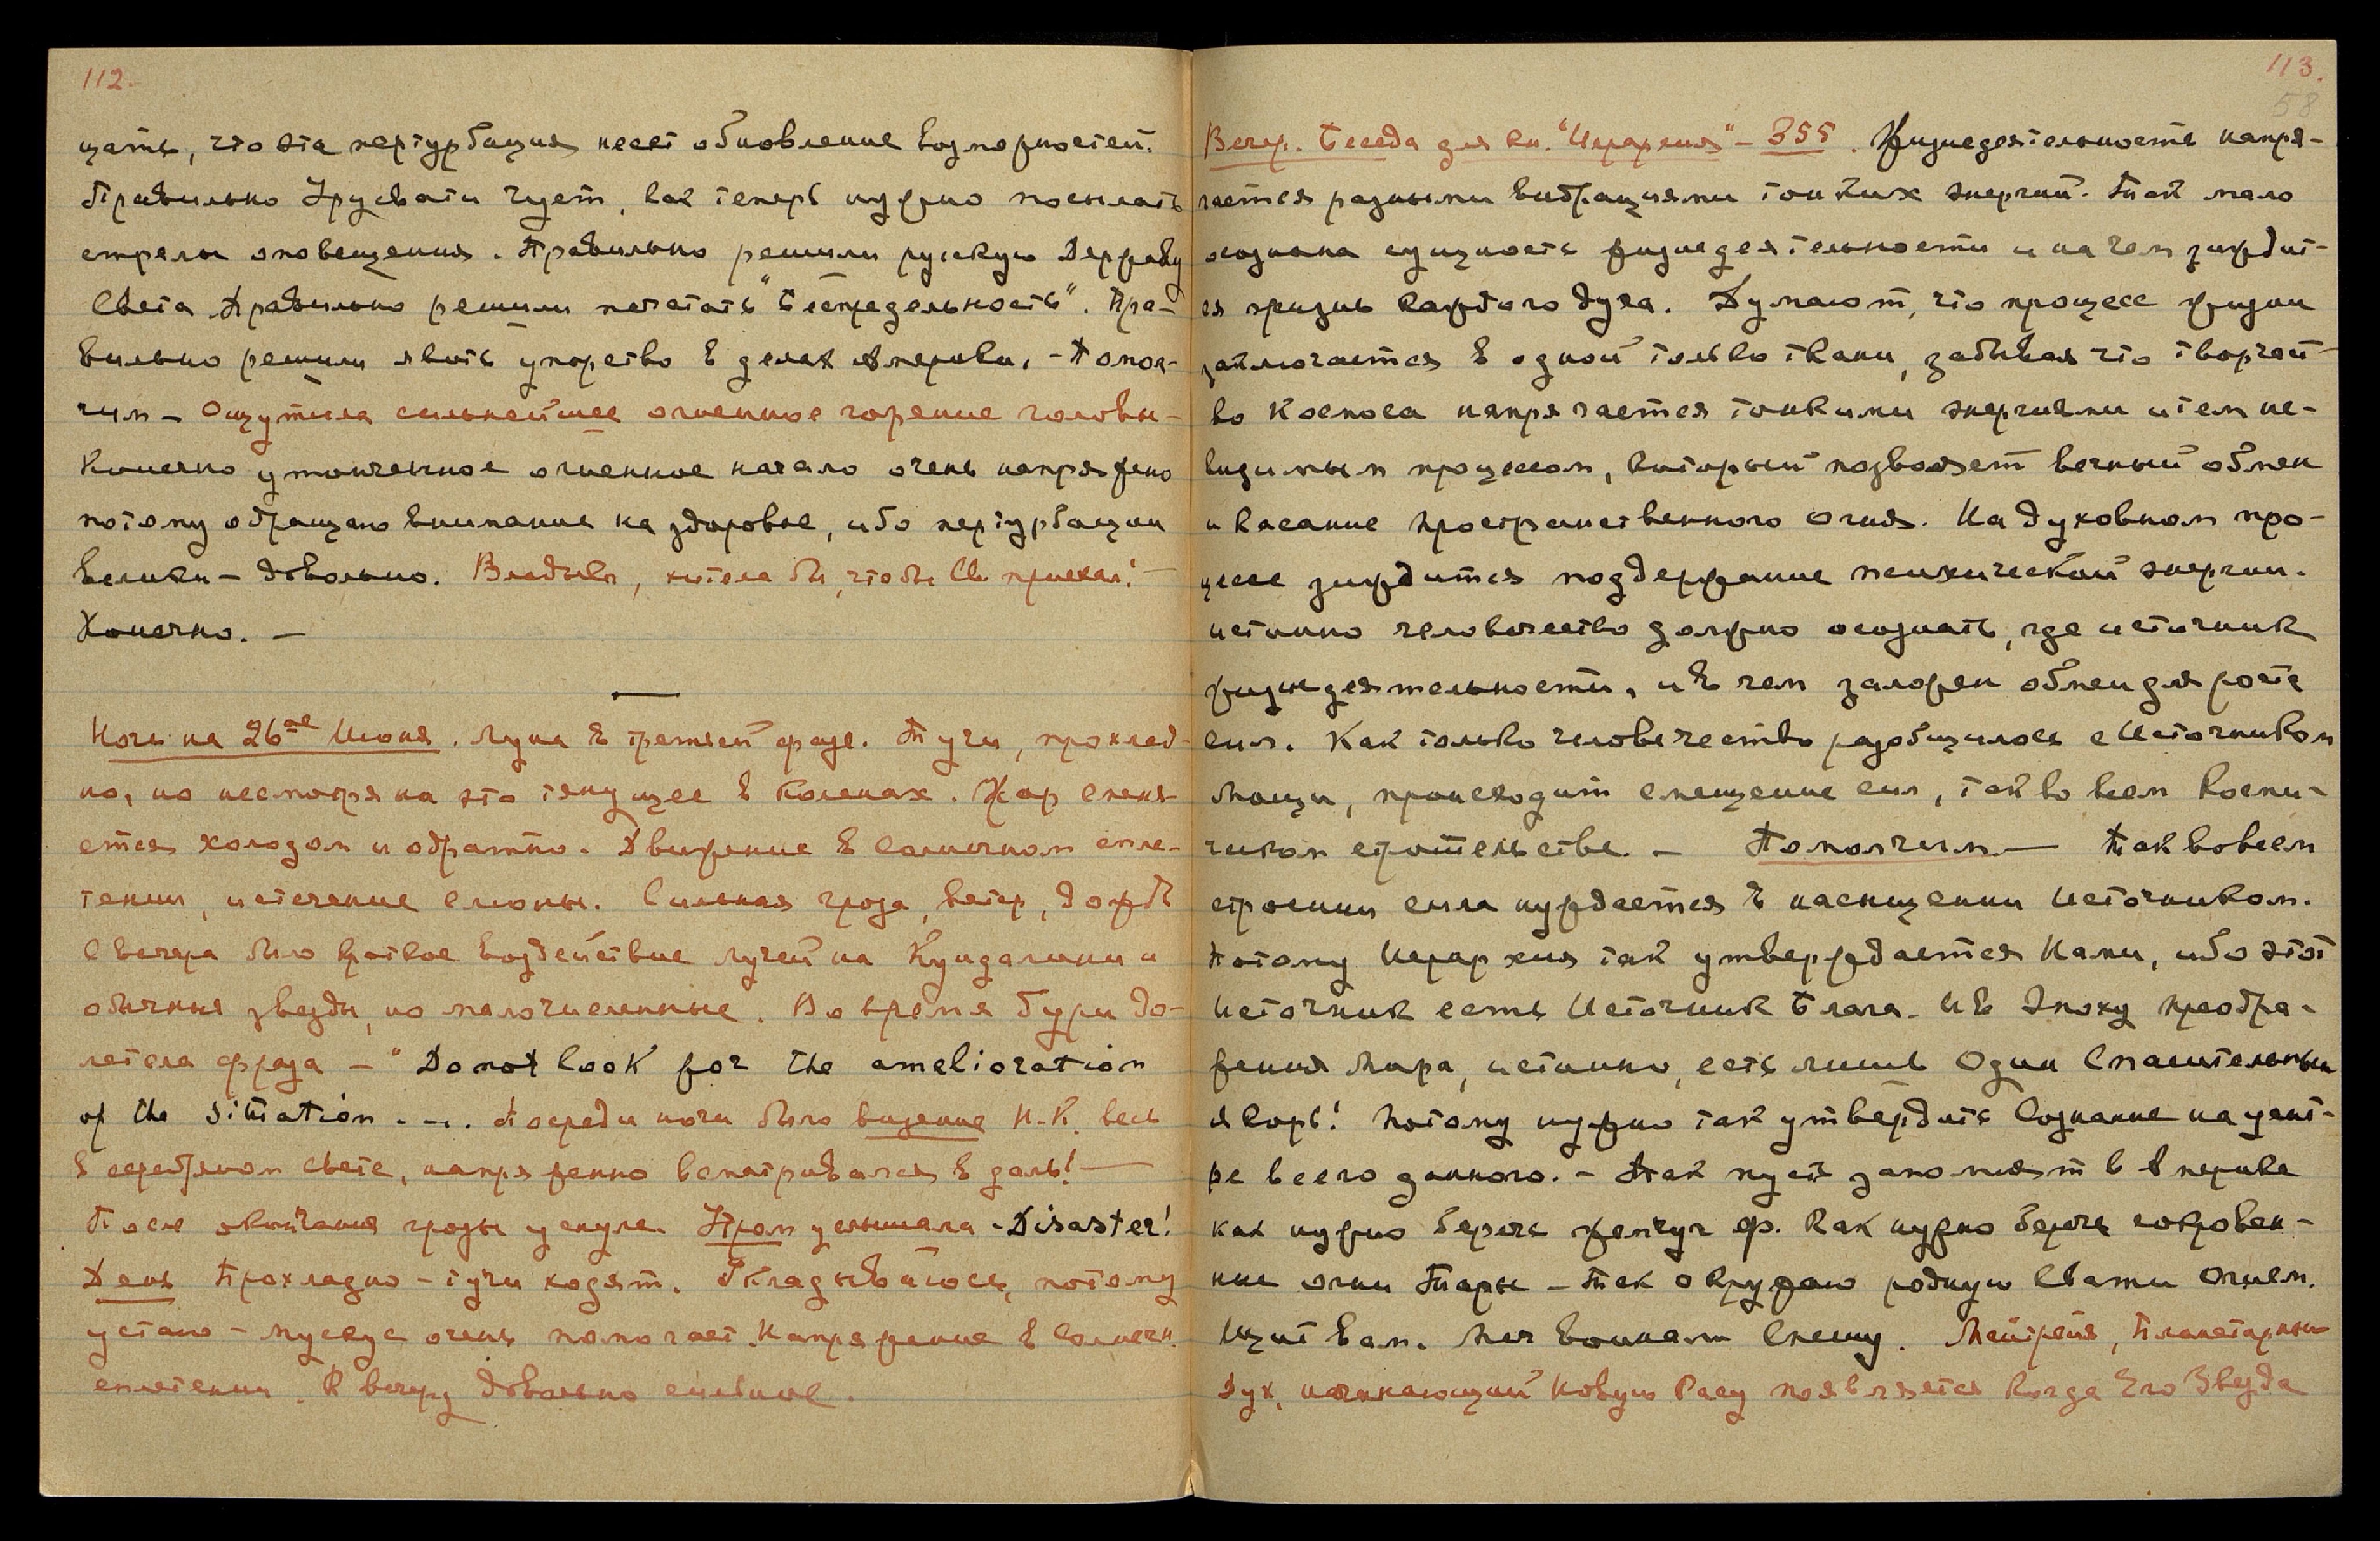 112.
щать, что эта пертурбация несет обновление возможностей.
Правильно Урусвати чует, как теперь нужно посылать
стрелы оповещения. Правильно решили русскую Державу
Света. Правильно решили печатать "Беспредельность". Пра-
вильно решили явить упорство в делах Америки. - Помол-
чим - Ощутила сильнейшее огненное горение головы -
Конечно утонченное огненное начало очень напряжено
потому обращаю внимание на здоровье, ибо пертурбации
велики - довольно. Владыка, хотела бы, чтобы Вы приехал! -
Конечно. -
Ночь на 26ое Июня. Луна в третьей фазе. Тучи, прохлад-
но, но несмотря на это тянущее в коленах. Жар сменя-
ется холодом и обратно. Движение в солнечном спле-
тении, истечение слюны. Сильная гроза, ветер, дождь
С вечера было краткое воздействие лучей на Кундалини и
обычные звезды, но малочисленные. Во время бури до-
летела фраза - "Do not look for the amelioration
of the situation . -. . Посреди ночи было видение Н.К. весь
в серебряном свете, напряженно всматривался в даль! -
После окончания грозы уснула. Утром услышала - Disaster!
День Прохладно - тучи ходят. Укладываюсь, потому
устаю - мускус очень помогает. Напряжение в солнечн.
сплетении. К вечеру довольно сильное.
113.
58
Вечер. Беседа для кн. "Иерархия" - 355. Жизнедеятельность напря-
гается разными вибрациями тонких энергий. Так мало
осознана сущность жизнедеятельности и на чем зиждит-
ся жизнь каждого духа. Думают, что процесс жизни
заключается в одной только ткани, забывая что творчест-
во Космоса напрягается тонкими энергиями и тем не-
видимым процессом, который позволяет вечный обмен
и касание пространственного огня. На духовном про-
цессе зиждится поддержание психической энергии.
истинно человечество должно осознать, где источник
жизнедеятельности, и в чем заложен обмен для роста
сил. Как только человечество разобщилось с Источником
Мощи, происходит смещение сил, так во всем косми-
ческом строительстве. - Помолчим. - Так во всем
строении сила нуждается в насыщении Источником.
Потому Иерархия так утверждается Нами, ибо этот
Источник есть Источник Блага. И в Эпоху преобра-
жения Мира, истинно, есть лишь Один Спасительный
якорь! Потому нужно так утвердить сознание на цент-
ре всего данного. - Так пусть запомнят в Америке
как нужно беречь жемчуг ф. Как нужно беречь сокровен-
ные огни Тары - Так окружаю родную Свати Огнем.
Щит вам. Меч воинам Спешу. Майтрейя, Планетарный
Дух, начинающий Новую Расу появляется когда Его Звезда